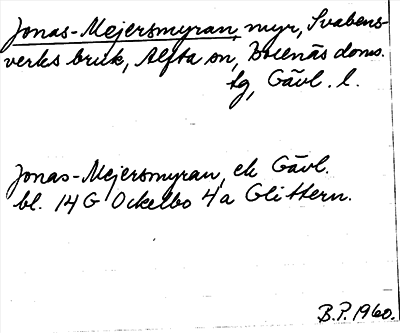 Jonas-Mejersmyran, myr, Svabens-
verks bruk, Alfta sn, Bollnäs doms.
tg, Gävl. l.
Jonas-Mejersmyran, ek Gävl.
bl. 14 G Ockelbo 4a Glittern.
B.P. 1960.